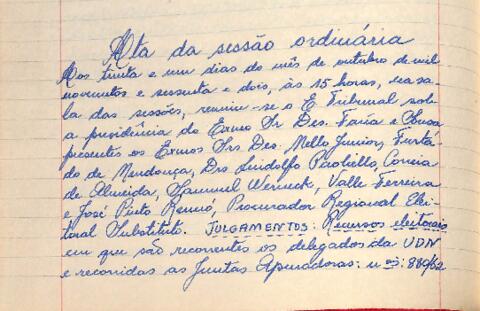 Ata da sessão ordinária
Aos trinta e um dias do mês de outubro de mil
novecentos e sessenta e dois, às 15 horas, na sa-
la das sessões, reuniu-se o E. Tribunal sob
a presidência do Exmo Sr. Des. Faria e Sousa
presentes os Exmos Srs. Des. Mello Junior, Furta-
do de Mendonça, Drs. Lindolfo Paoliello, Correia
de Almeida, Sammuel Werneck, Valle Ferreira
e José Pinto Renó, Procurador Regional Elei-
toral Substituto. JULGAMENTOS: Recursos eleitorais
em que são recorrentes os delegados da UDN
e recorridas as Juntas Apuradoras: nºs: 880/62